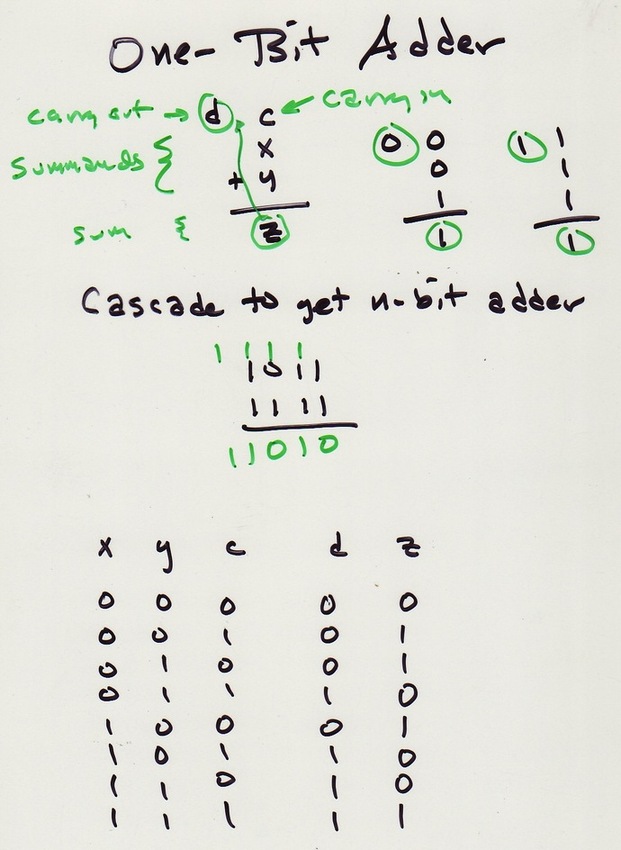 One-Bit Adder
carry out → d c ← carry in
summands { x 0 0 1 1
+ y 0 1
1 1
sum { z 1 1
Cascade to get n-bit adder
1 1 1 1
1 0 1 1
1 1 1 1
1 1 0 1 0
x y c d z
0 0 0 0 0
0 0 1 0 1
0 1 0 0 1
0 1 1 1 0
1 0 0 0 1
1 0 1 1 0
1 1 0 1 0
1 1 1 1 1